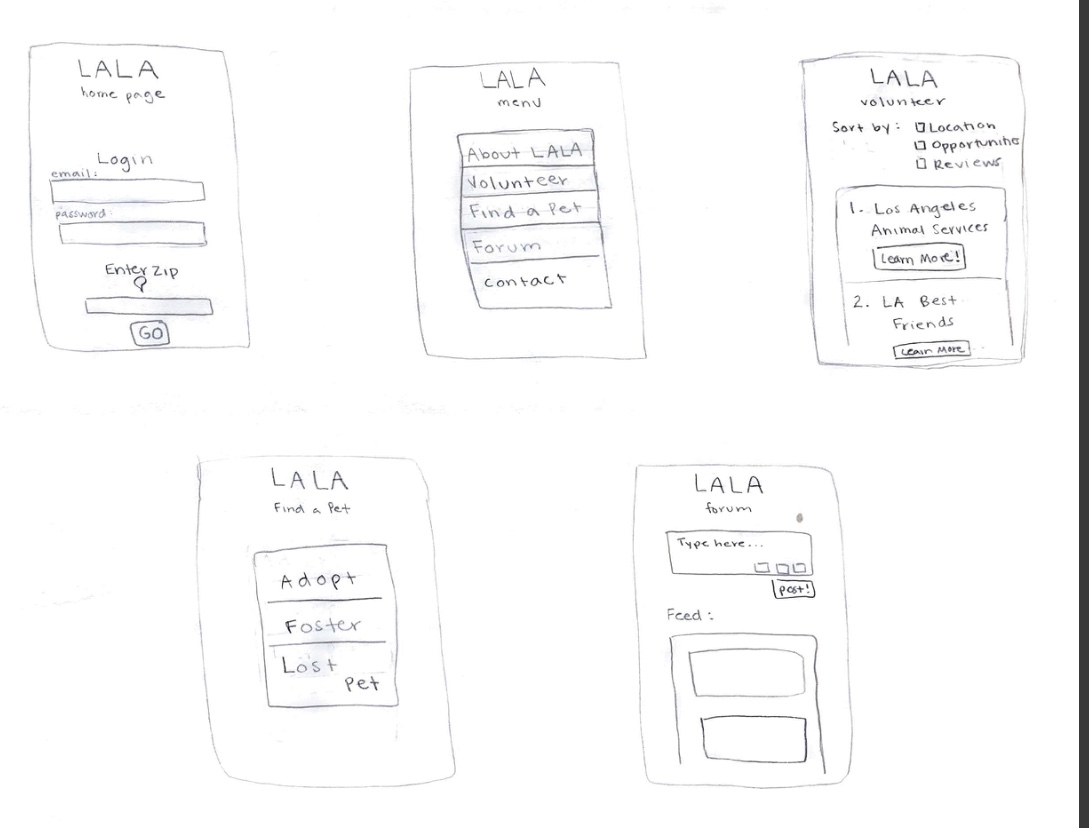 LALA
home page
Login
email:
password:
Enter Zip
GO
LALA
menu
About LALA
Volunteer
Find a Pet
Forum
Contact
LALA
volunteer
Sort by: Location
Opportunitie
Reviews
1. Los Angeles
Animal Services
Learn More!
2. LA Best
Friends
Learn More
LALA
Find a Pet
Adopt
Foster
Lost
Pet
LALA
forum
Type here...
post!
Feed: